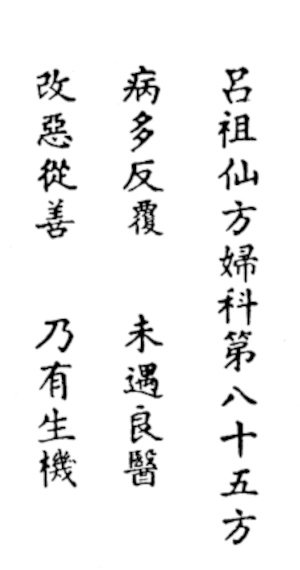 呂祖仙方婦科第八十五方
病多反覆　未遇良醫
改惡從善　乃有生機